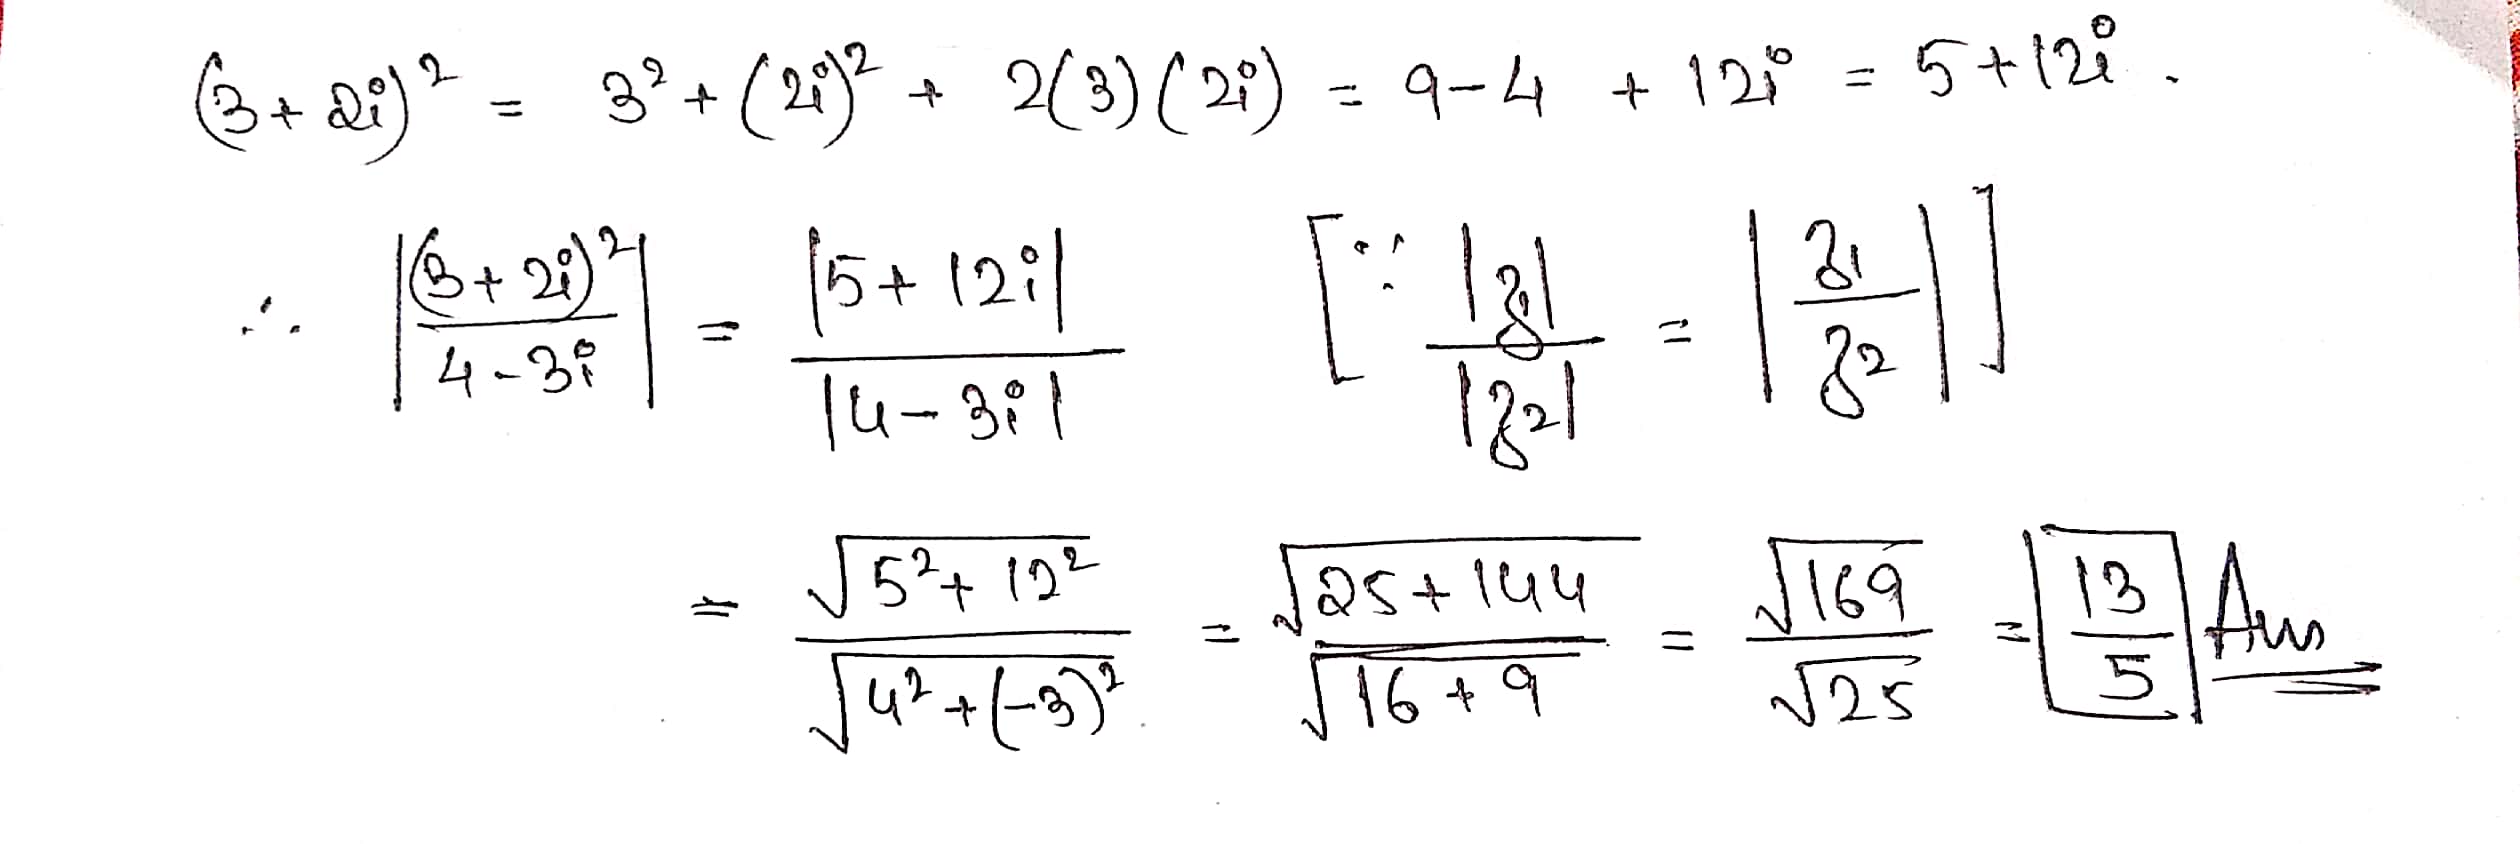 (3+2i)² = 3² + (2i)² + 2(3)(2i) = 9-4 + 12i = 5+12i.
∴ |(3+2i)²/4-3i| = |5+12i|/|4-3i| [∵ |z₁|/|z₂| = |z₁/z₂|]
= √5²+12²/√4²+(-3)² = √25+144/√16+9 = √169/√25 = 13/5 Ans